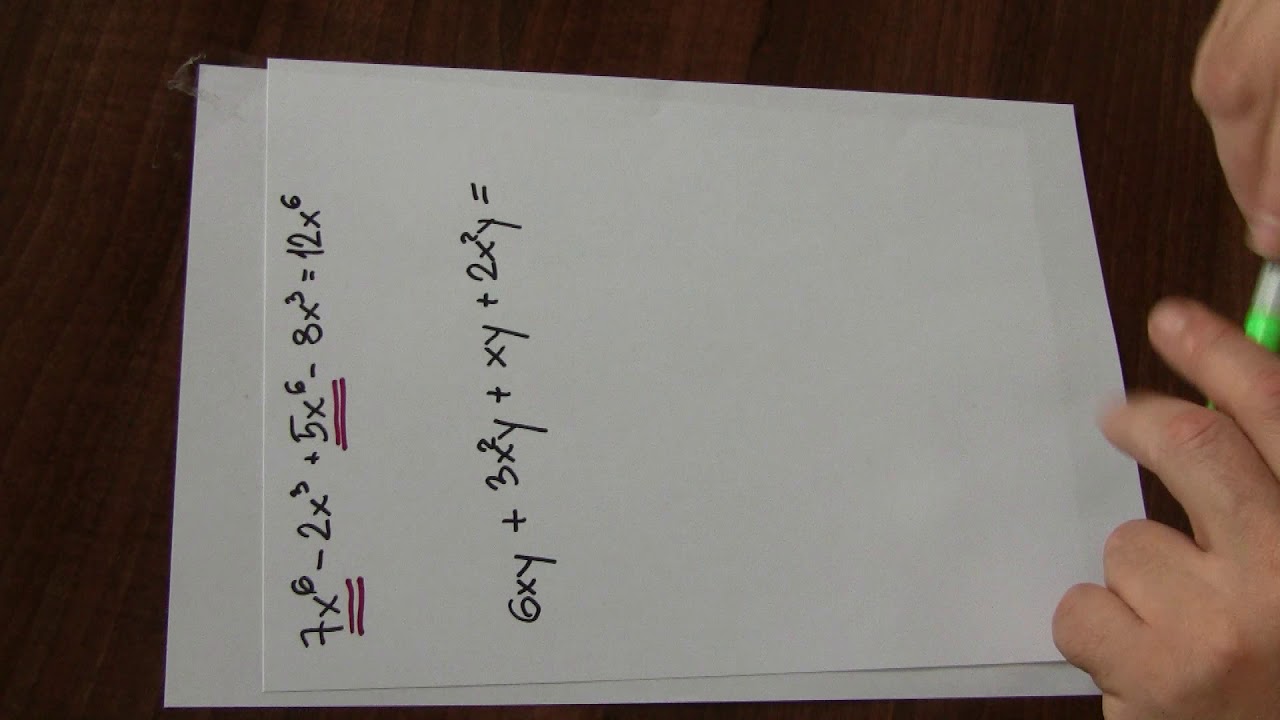 7x⁶ - 2x³ + 5x⁶ - 8x³ = 12x⁶
6xy + 3x²y + xy + 2x²y =